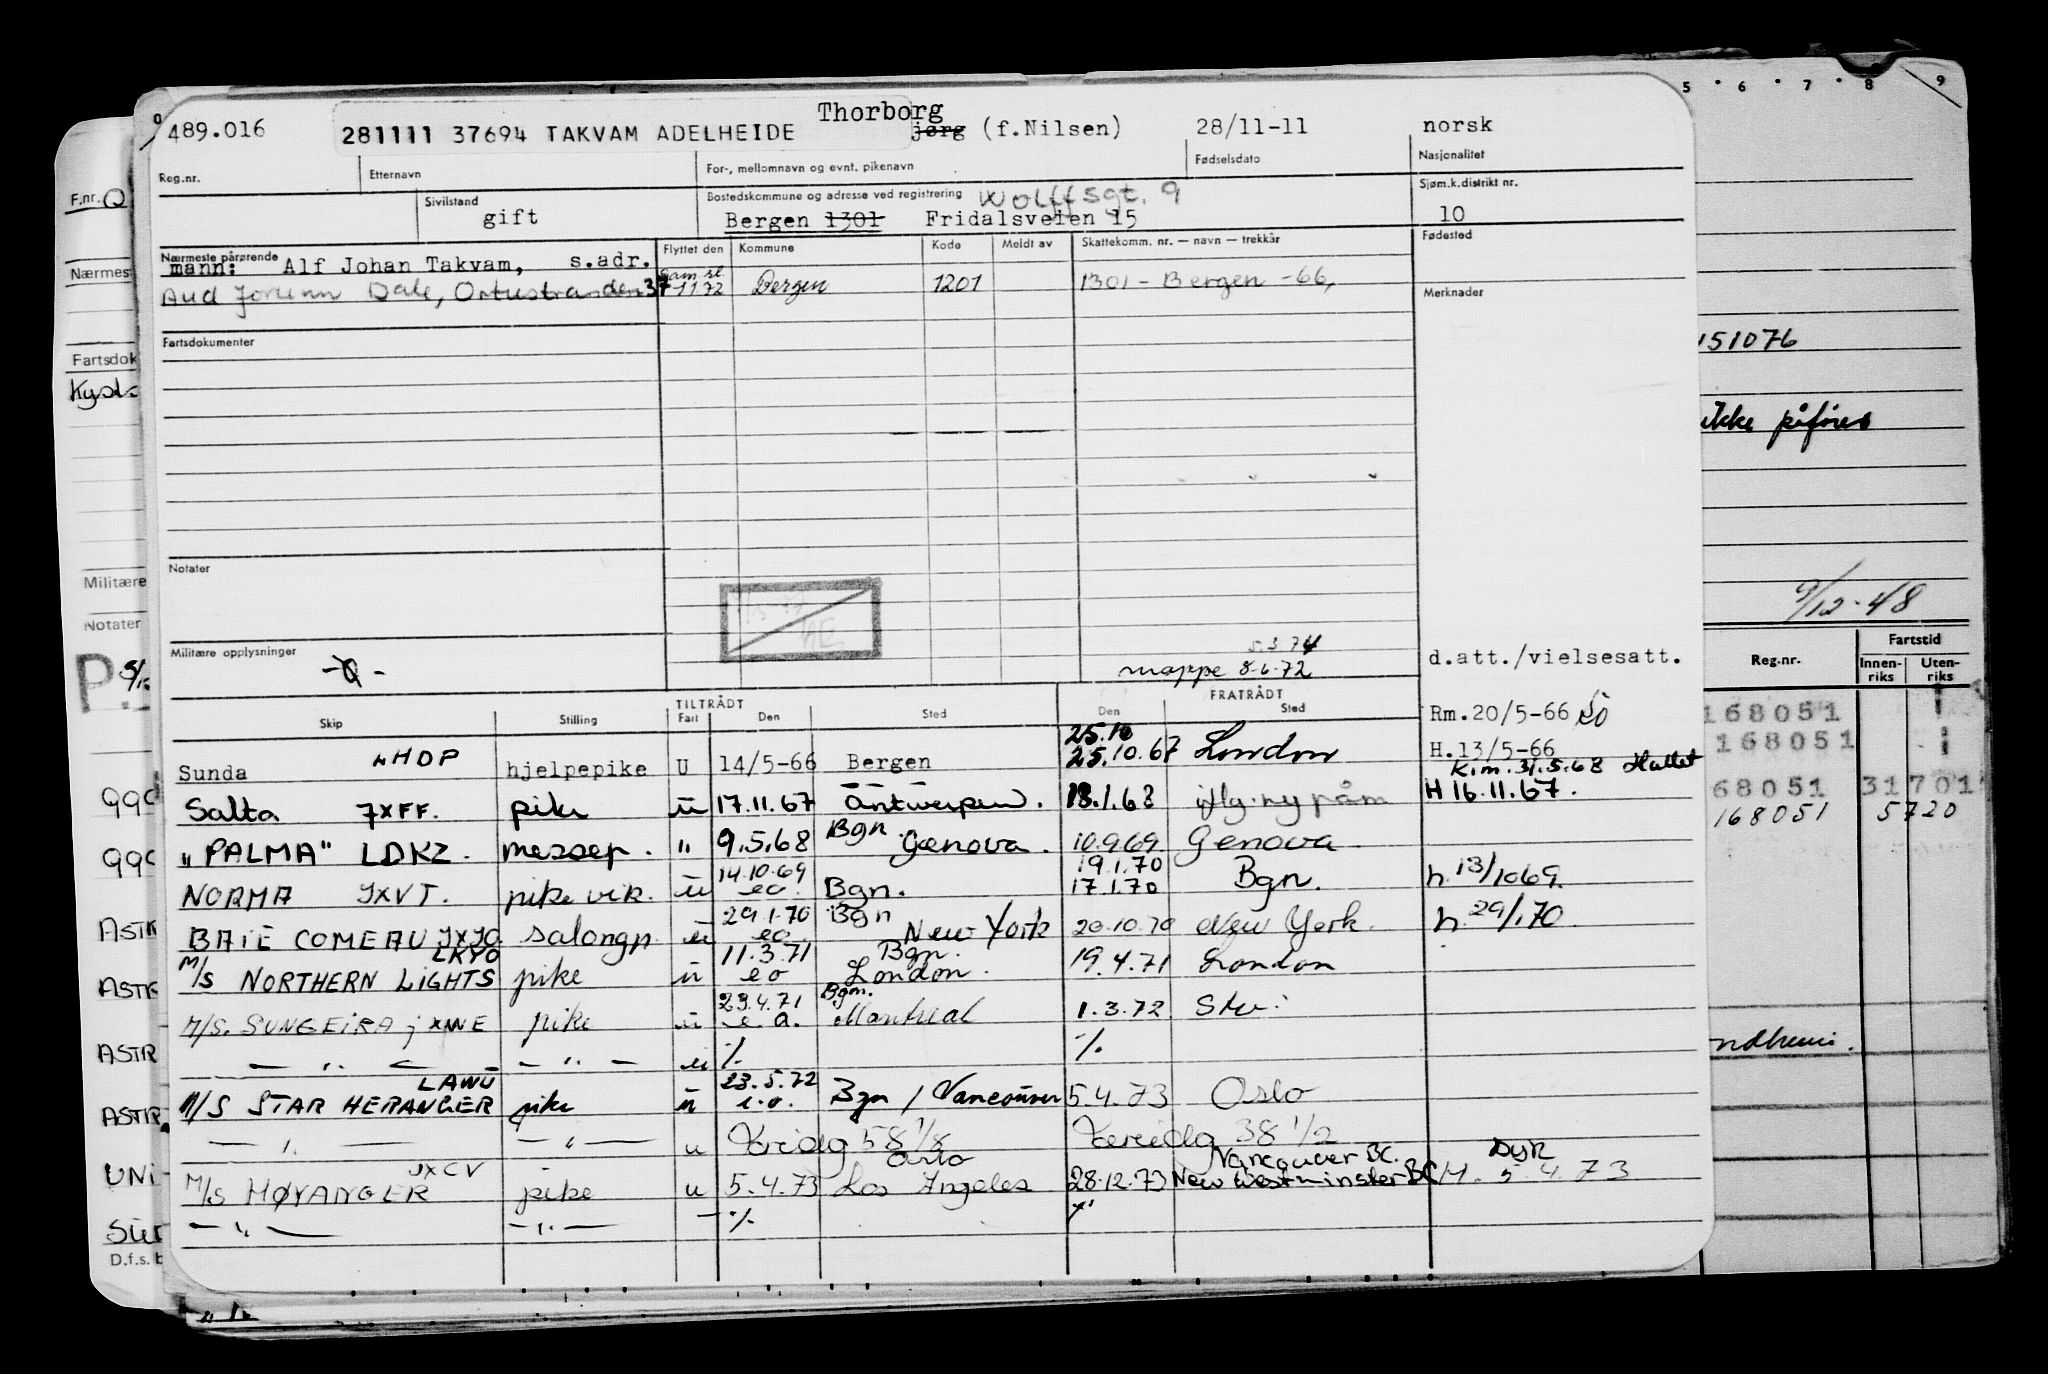 Thorborg
489.016 281111 37694 TAKVAM ADELHEIDE jørg (f.Nilsen) 28/11-11 norsk
Reg.nr. Etternavn For-, mellomnavn og evnt. pikenavn Fødselsdato Nasjonalitet
Sivilstand Bostedskommune og adresse ved registrering Wolffsgt. 9 Sjøm.k.distrikt nr.
gift Bergen 1301 Fridalsveien 15 10
Nærmeste pårørende Flyttet den Kommune Kode Meldt av Skattekomm. nr. — navn — trekkår Fødested
mann: Alf Johan Takvam, s.adr.
Aud Jorunn Dale, 37 -1172 Bergen 1201 1301 - Bergen -66,
Merknader
Fartsdokumenter
Notater
Militære opplysninger
5.3.74
mappe 8-6-72
d.att./vielsesatt.
TILTRÅDT FRATRÅDT
Skip Stilling Fart Den Sted Den Sted
Rm.20/5-66
25.10
Sunda LHDP hjelpepike U 14/5-66 Bergen 25.10.67 London H.13/5-66
K.m. 31.5.68
Salta JXFF. pike u 17.11.67 Antwerpen. 18.1.68 H 16.11.67.
"PALMA" LDKZ. messep. " 9.5.68 Bgn. Genova. 10.9.69 Genova
14.10.69 19.1.70
NORMA JXVT. pike vik. u eo. Bgn. 17.1.70 Bgn. h. 13/10 69.
29.1.70 Bgn
BAIE COMEAU JXJO salongp. u eo New York 20.10.70 New York. h. 29/1 70.
LKYO 11.3.71 Bgn.
M/S NORTHERN LIGHTS pike u eo London. 19.4.71 London
23.4.71 Bgn.
M/S. SUNGEIRA jXWE pike u e.a. Montreal 1.3.72 Stv.
— " — — " — u % %
LAWU 23.5.72
M/S STAR HERANGER pike u e.o. Bgn / Vancouver 5.4.73 Oslo
— " — — " — u 58 1/8 38 1/2
JXCV Oslo Vancouver BC. DyR
M/S HØYANGER pike u 5.4.73 Los Angeles 28.12.73 New Westminster BC H. 5.4.73
— " — — " — - %
F.nr.
Nærmes
Fartsdok
Kyst
Militære
Notater
P
99
99
ASTR
ASTR
ASTR
ASTR
UNI
D.f.s. b
5 6 7 8 9
151076
ikke påføres
9/12-48
Reg.nr. Fartstid
Innen-riks Uten-riks
168051
168051
68051 31701
168051 5720